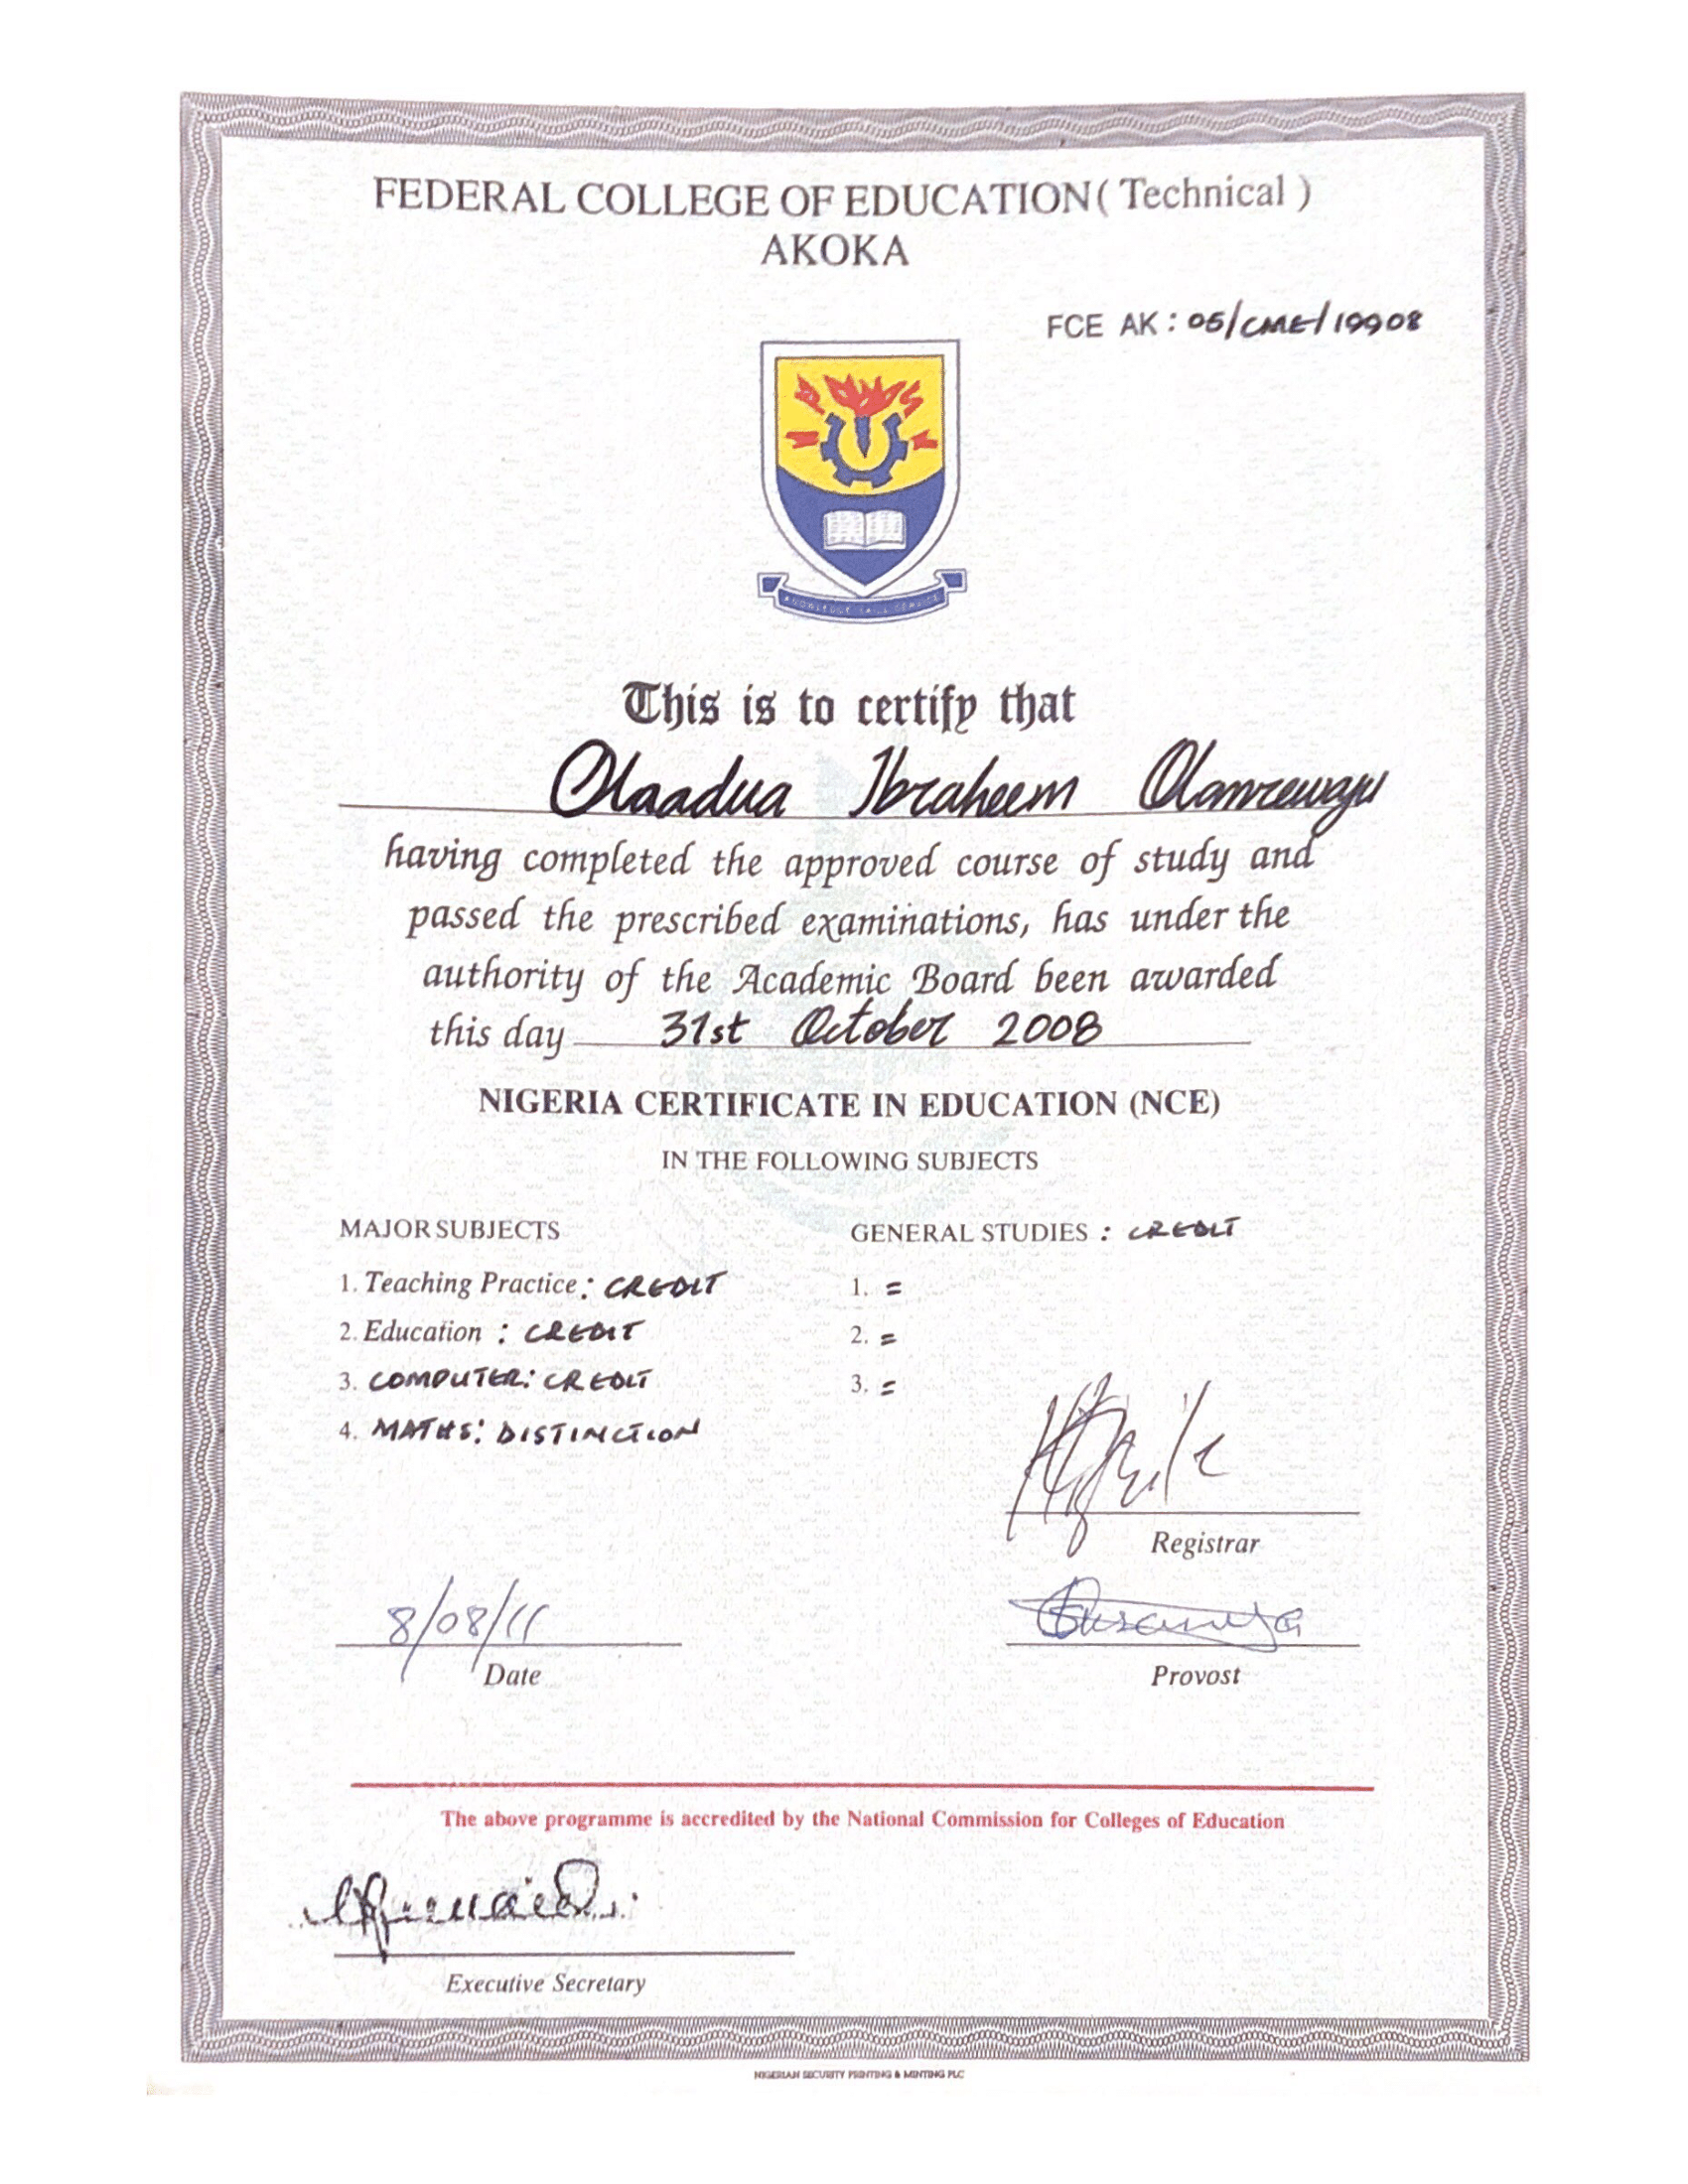 FEDERAL COLLEGE OF EDUCATION ( Technical )
AKOKA
FCE AK : 05/CME/19908
KNOWLEDGE SKILL SERVICE
This is to certify that
Olaadua Ibraheem Olanrewaju
having completed the approved course of study and
passed the prescribed examinations, has under the
authority of the Academic Board been awarded
this day 31st October 2008
NIGERIA CERTIFICATE IN EDUCATION (NCE)
IN THE FOLLOWING SUBJECTS
MAJOR SUBJECTS
1. Teaching Practice : CREDIT
2. Education : CREDIT
3. COMPUTER: CREDIT
4. MATHS: DISTINCTION
GENERAL STUDIES : CREDIT
1. =
2. =
3. =
Registrar
8/08/11
Date
Provost
The above programme is accredited by the National Commission for Colleges of Education
Executive Secretary
NIGERIAN SECURITY PRINTING & MINTING PLC